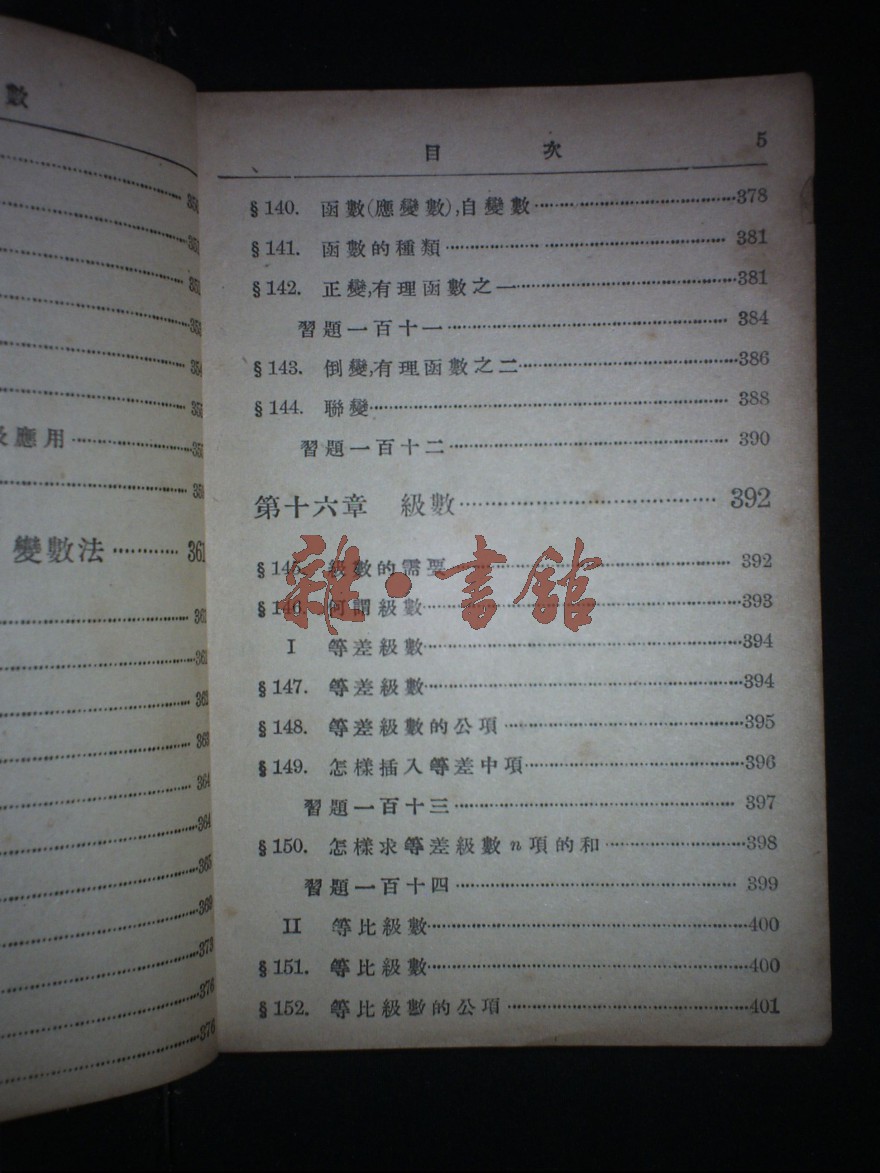 數
及應用
變數法 ………… 361
361
361
362
363
364
364
365
369
373
376
376
目 次 5
§140. 函數(應變數),自變數 ………… 378
§141. 函數的種類 ………… 381
§142. 正變,有理函數之一 ………… 381
習題一百十一 ………… 384
§143. 倒變,有理函數之二 ………… 386
§144. 聯變 ………… 388
習題一百十二 ………… 390
第十六章 級數 ………… 392
§145. 級數的需要 ………… 392
§146. 何謂級數 ………… 393
I 等差級數 ………… 394
§147. 等差級數 ………… 394
§148. 等差級數的公項 ………… 395
§149. 怎樣插入等差中項 ………… 396
習題一百十三 ………… 397
§150. 怎樣求等差級數 n 項的和 ………… 398
習題一百十四 ………… 399
II 等比級數 ………… 400
§151. 等比級數 ………… 400
§152. 等比級數的公項 ………… 401
雜·書館